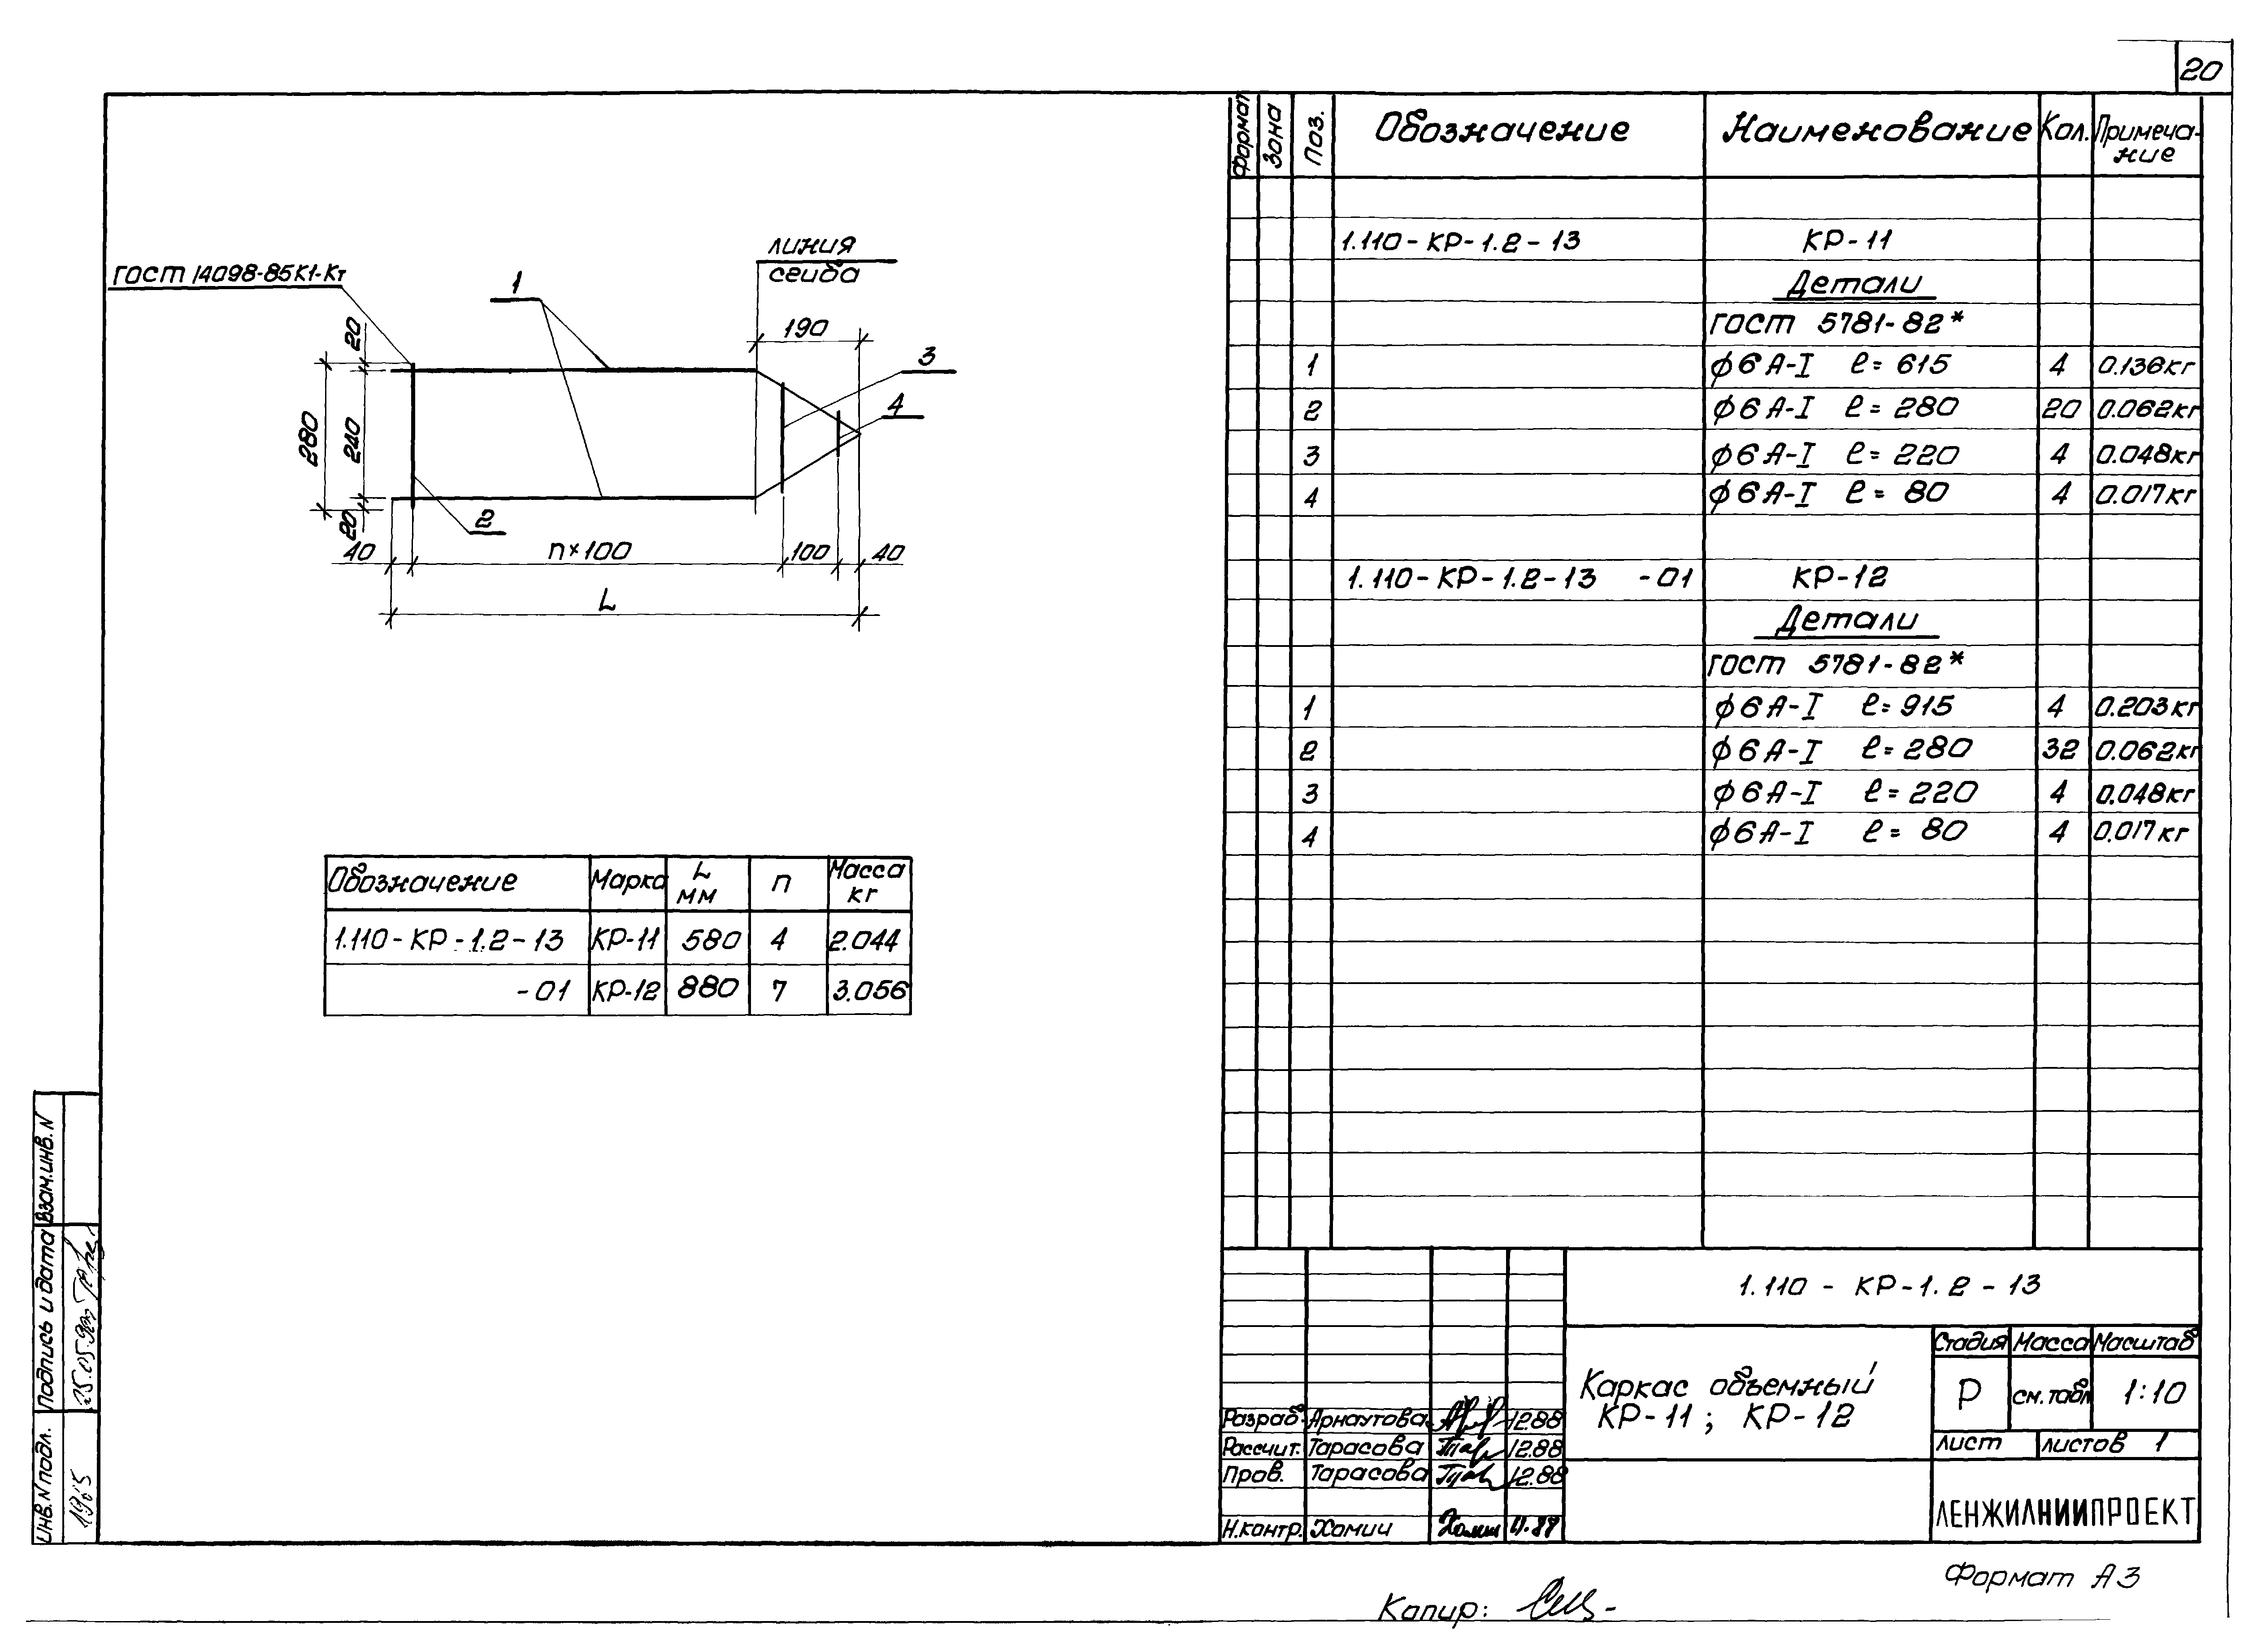 20
ГОСТ 14098-85К1-Кт
1
линия
сгиба
190
3
4
20
240
280
20
2
40
n×100
100
40
L
Обозначение Марка L мм n Масса кг
1.110-КР-1.2-13 КР-11 580 4 2.044
-01 КР-12 880 7 3.056
Формат Зона Поз. Обозначение Наименование Кол. Примеча-
ние
1.110-КР-1.2-13 КР-11
Детали
ГОСТ 5781-82*
1 ϕ6А-I ℓ=615 4 0.136кг
2 ϕ6А-I ℓ=280 20 0.062кг
3 ϕ6А-I ℓ=220 4 0.048кг
4 ϕ6А-I ℓ=80 4 0.017кг
1.110-КР-1.2-13 -01 КР-12
Детали
ГОСТ 5781-82*
1 ϕ6А-I ℓ=915 4 0.203кг
2 ϕ6А-I ℓ=280 32 0.062кг
3 ϕ6А-I ℓ=220 4 0.048кг
4 ϕ6А-I ℓ=80 4 0.017кг
1.110-КР-1.2-13
Каркас объемный
КР-11; КР-12
Стадия Масса Масштаб
Р см.табл 1:10
Лист Листов 1
ЛЕНЖИЛНИИПРОЕКТ
Разраб. Арнаутова 12.88
Рассчит. Тарасова 12.88
Пров. Тарасова 12.88
Н.контр. Хомич
Взам.инв.N
Подпись и дата
Инв.N подл.
1965
Копир:
Формат А3